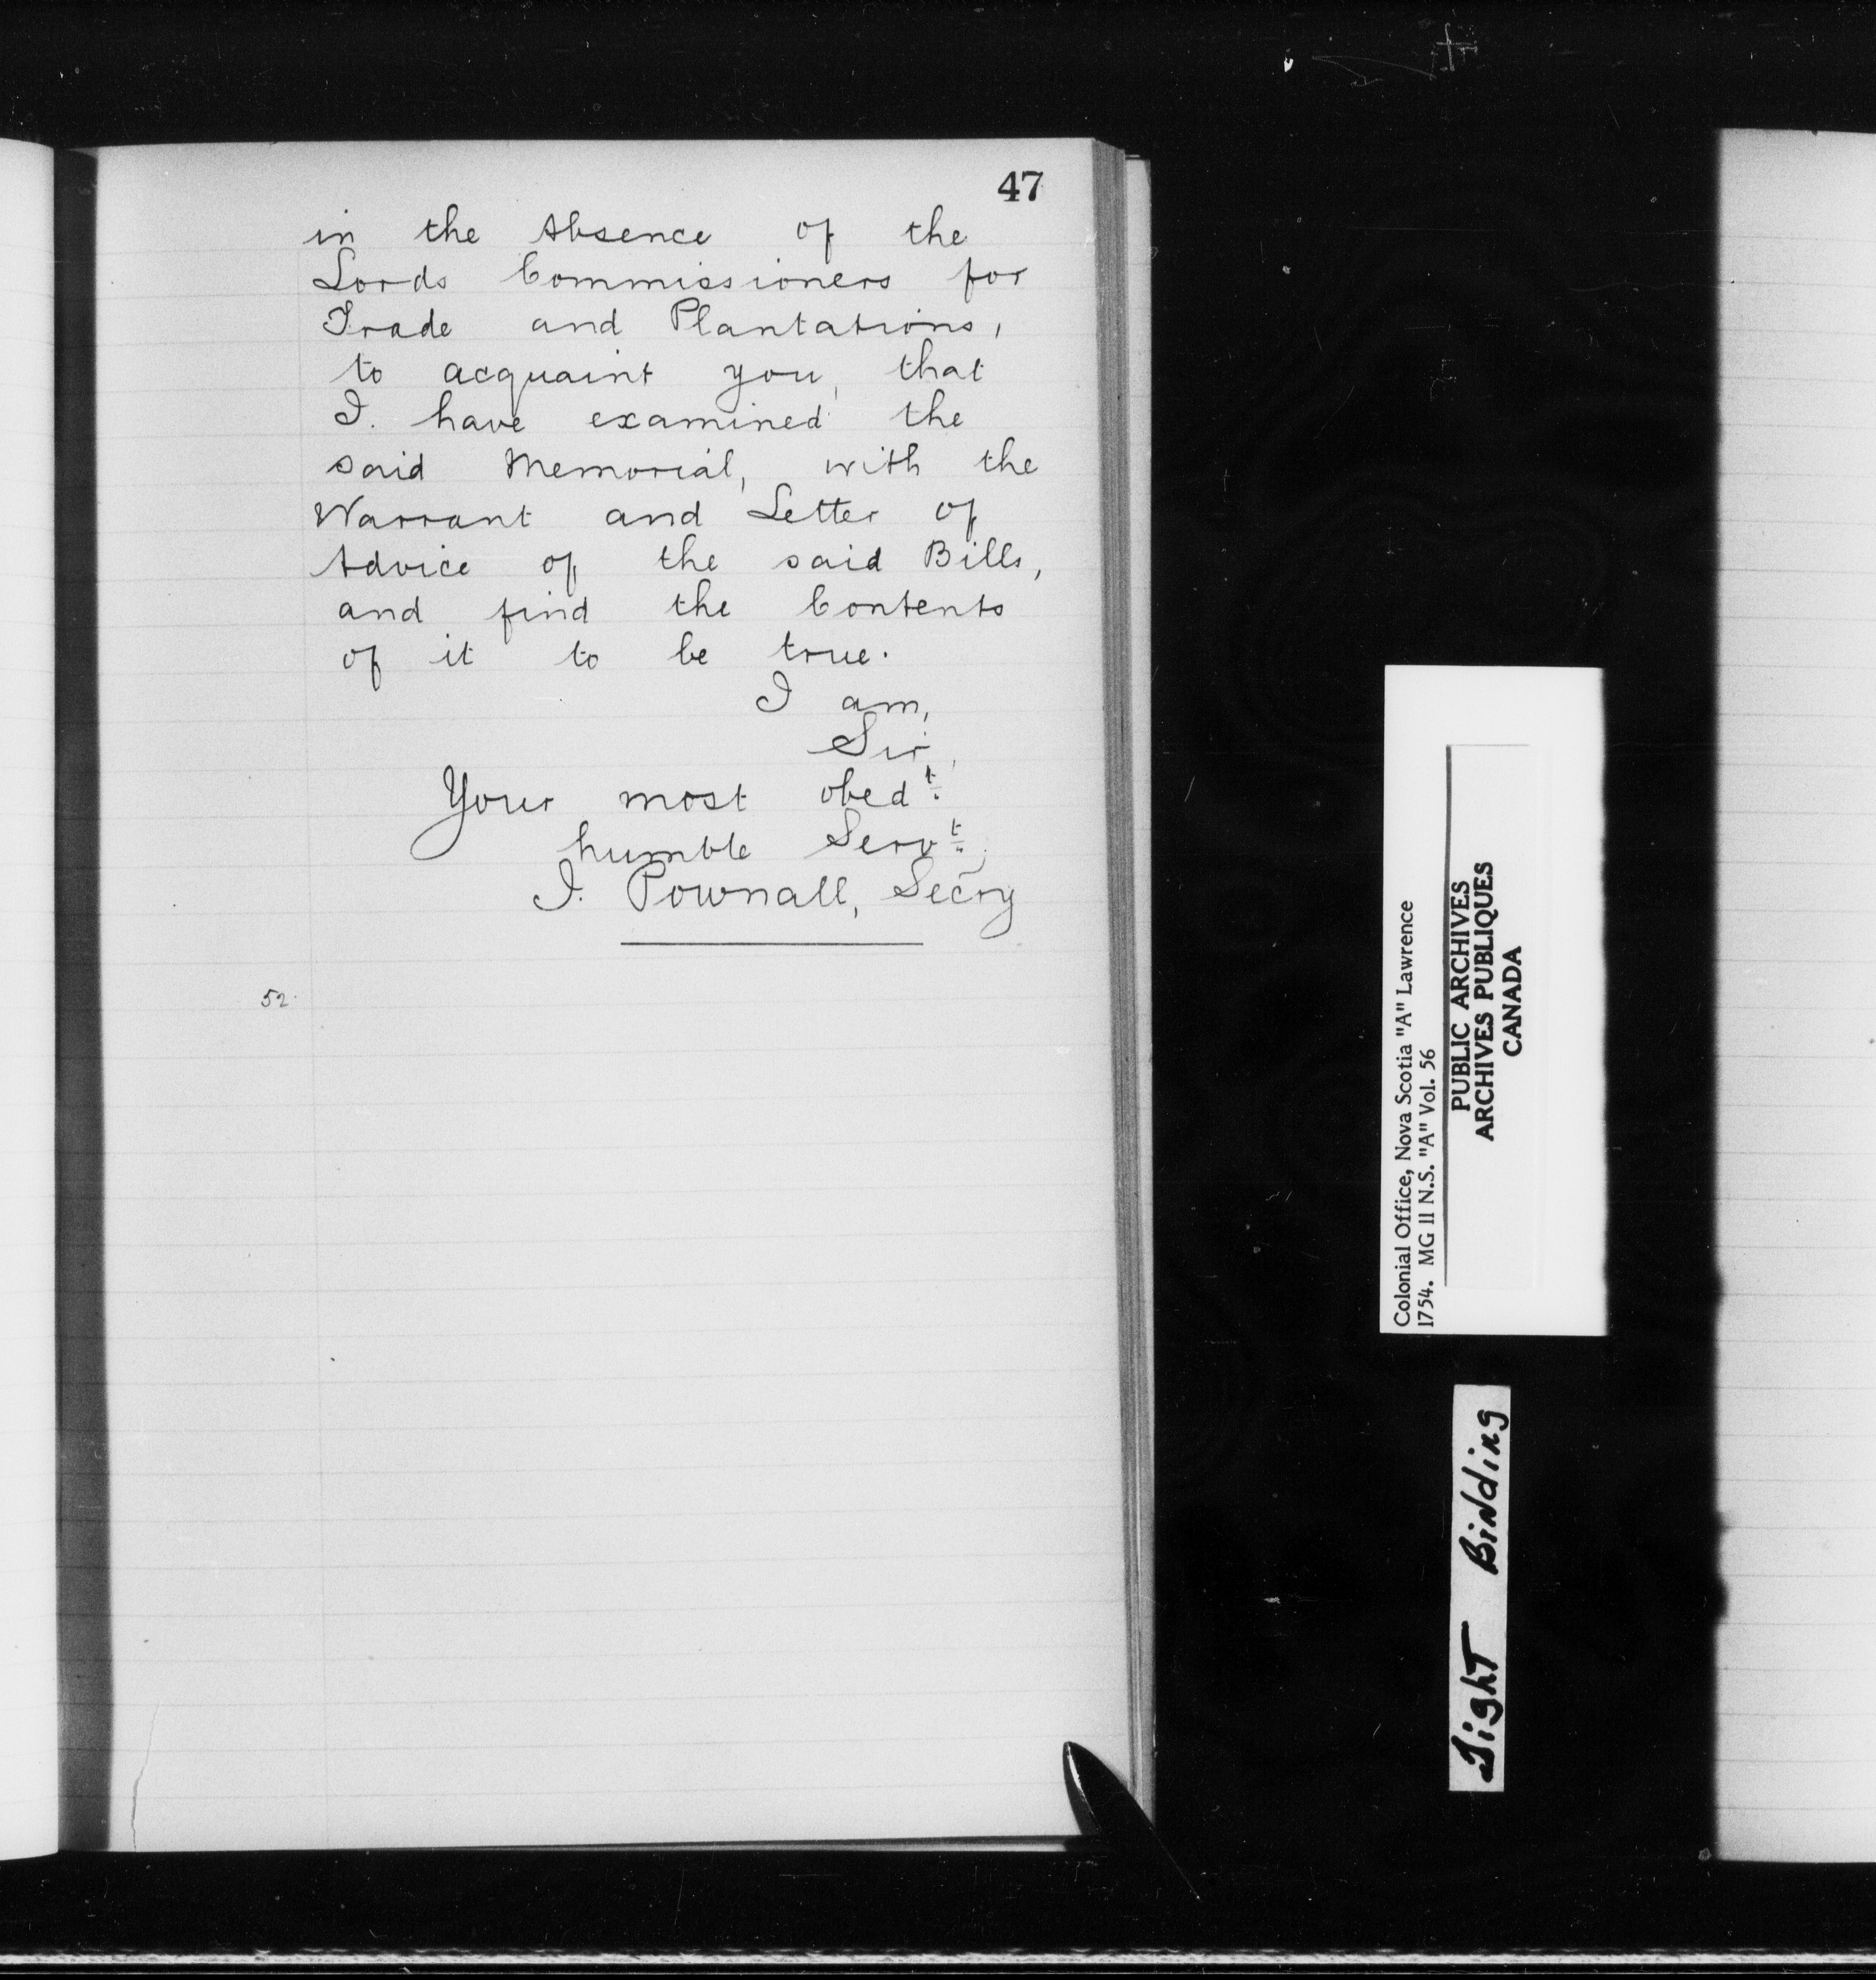 47
in the Absence of the
Lords Commissioners for
Trade and Plantations,
to acquaint you, that
I. have examined the
said Memorial, with the
Warrant and Letter of
Advice of the said Bills,
and find the Contents
of it to be true.
I am,
Sir,
Your most obedt.
humble Servt.,
J. Pownall, Secry
52.
Colonial Office, Nova Scotia "A" Lawrence
1754. MG 11 N.S. "A" Vol. 56
PUBLIC ARCHIVES
ARCHIVES PUBLIQUES
CANADA
Tight Binding